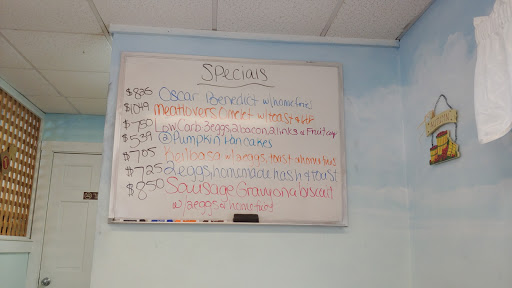 Specials
$8.25 Oscar Benedict w/homefries
$10.49 Meatlovers Omelet w/toast
$7.50 Low Carb 3eggs, 2bacon, 2links & Fruit cup
$5.39 ② Pumpkin Pancakes
$7.05 Kielbasa w/2eggs, toast
$7.25 2eggs, homemade hash & toast
$8.50 Sausage Gravy on a biscuit
w/2eggs &